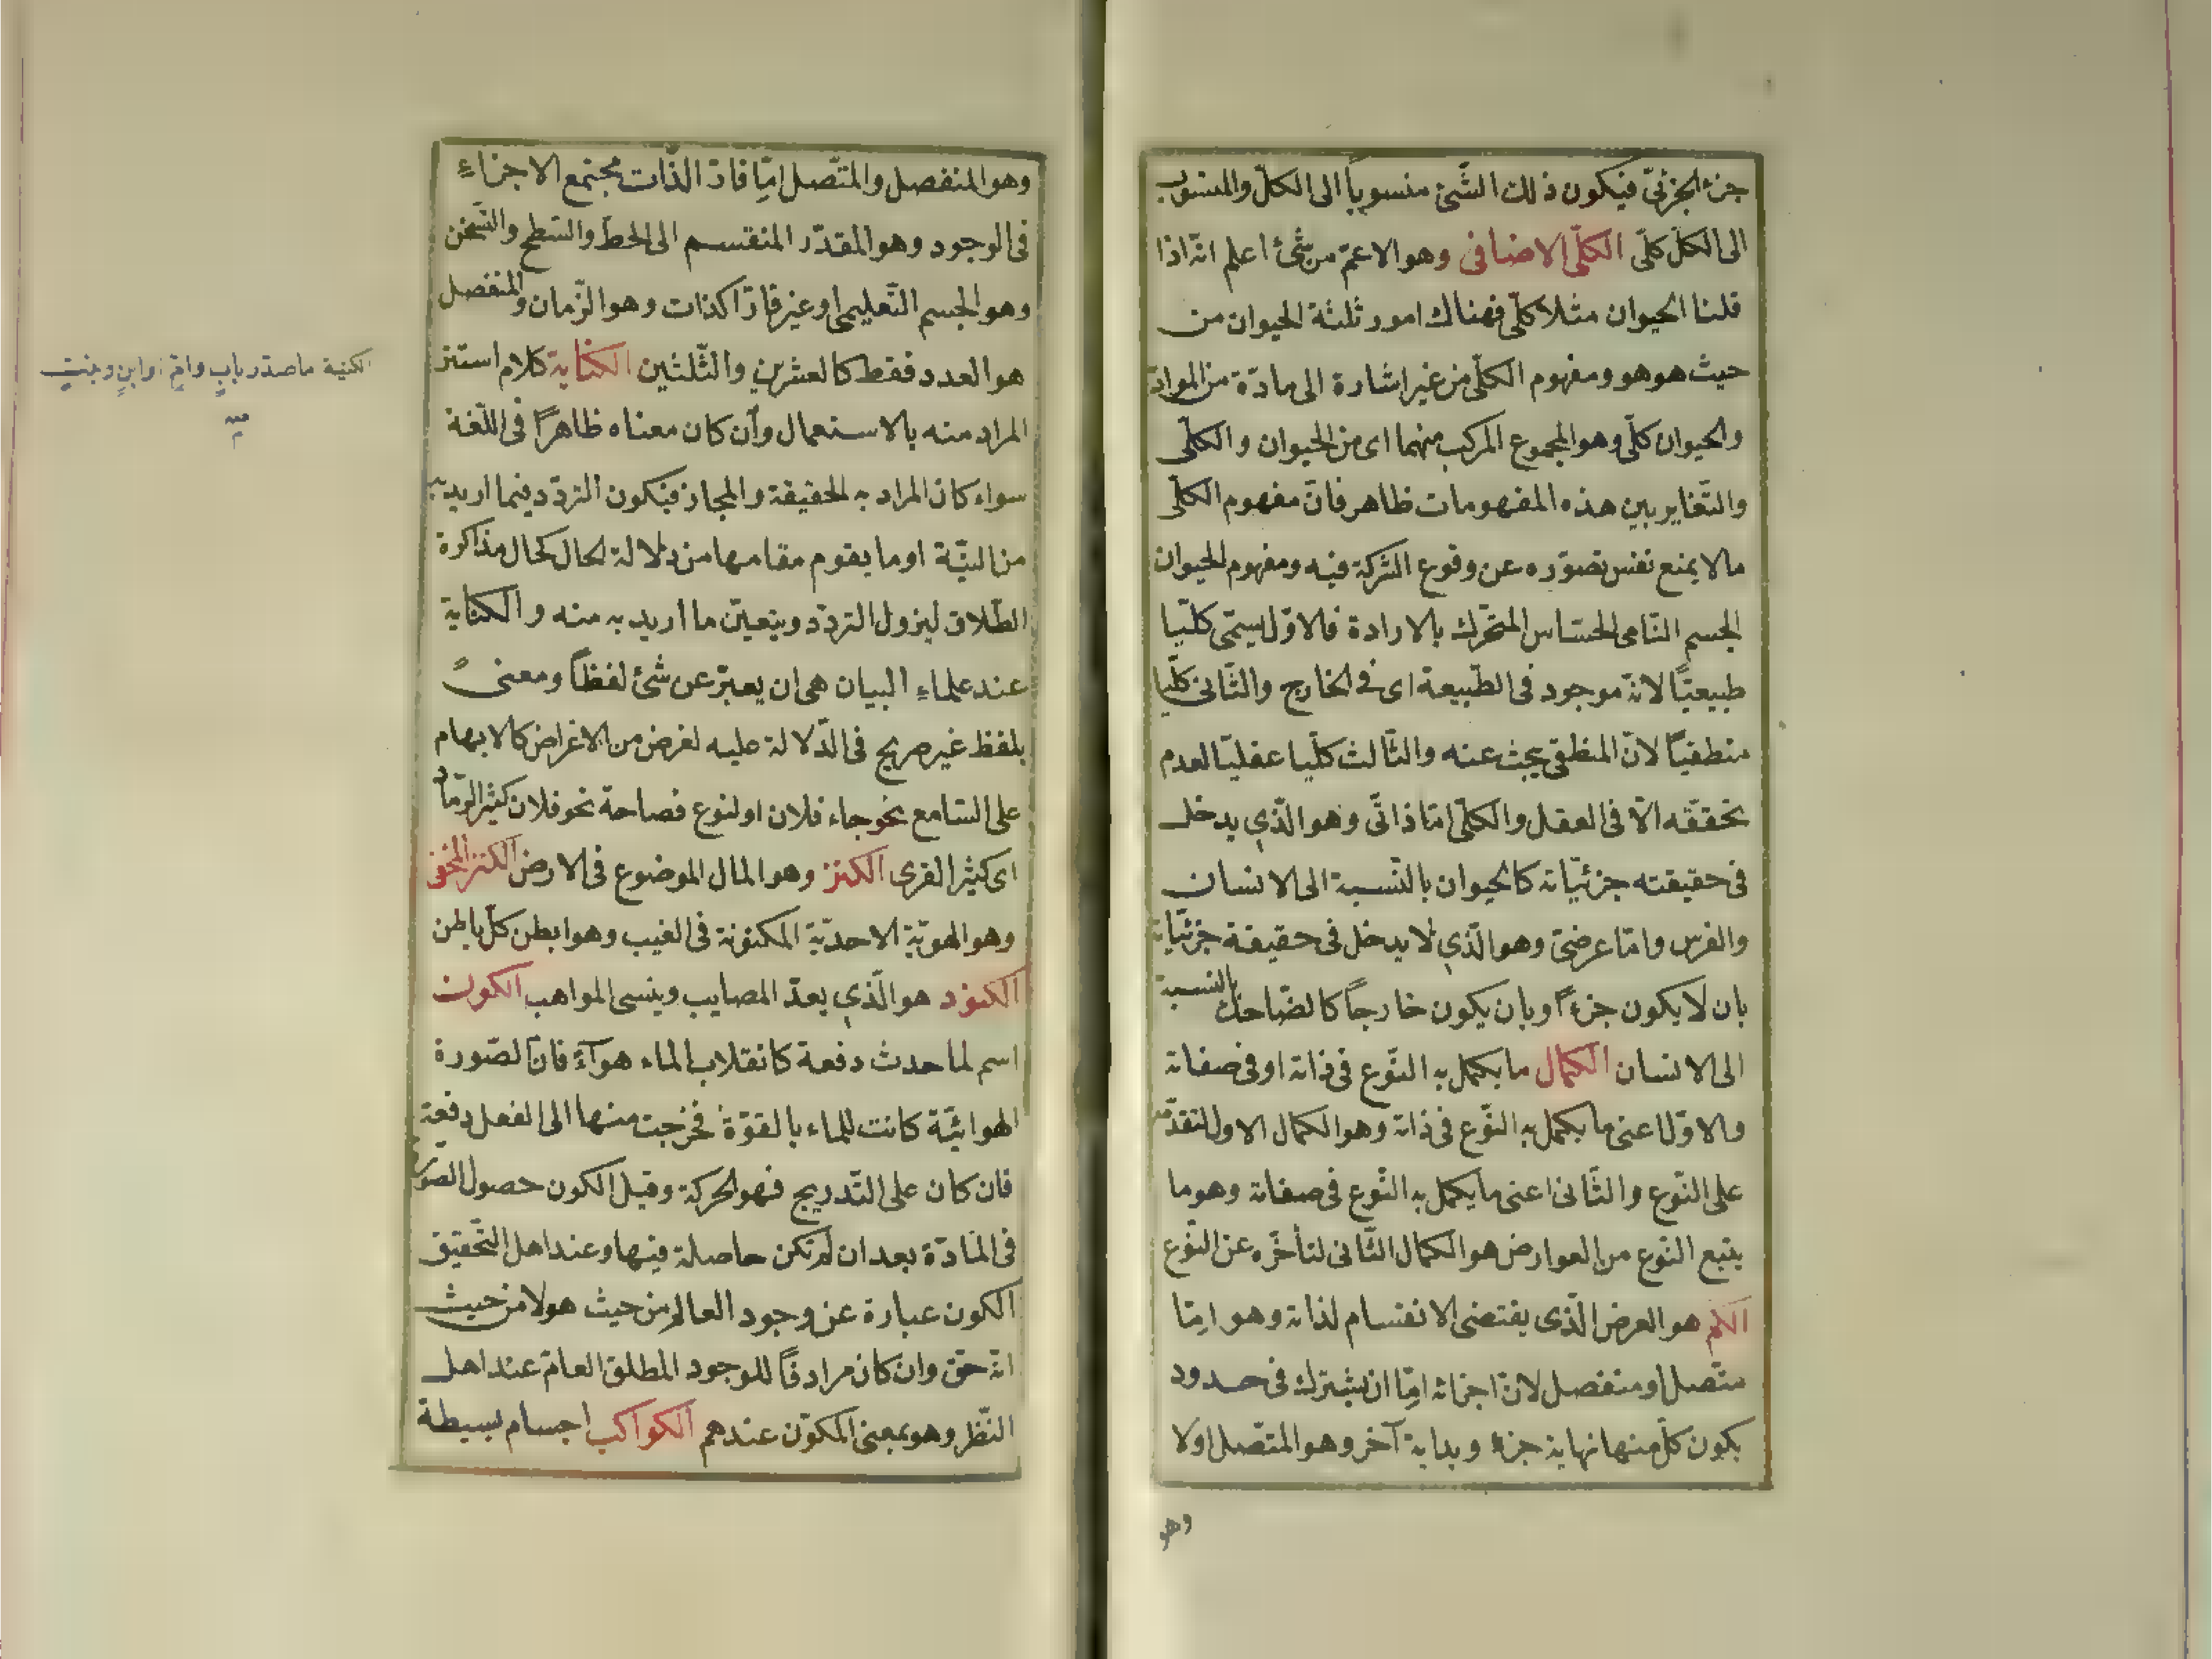 جزء الجزئيّ فيكون ذلك الشّئ منسوباً الى الكلّ والمنسوب
الى الكلّ كلّى الكلّى الاضافى وهو الاعمّ من شئ اعلم انّه اذا
قلنا الحيوان مثلا كلّى فهناك امور ثلثة الحيوان من
حيث هو هو ومفهوم الكلّى من غير اشارة الى مادّة من الموادّ
والحيوان كلّى وهو المجموع المركب منهما اى من الحيوان والكلّى
والتّغاير بين هذه المفهومات ظاهر فانّ مفهوم الكلّى
مالا يمنع نفس تصوّره عن وقوع الشركة فيه ومفهوم الحيوان
الجسم النّامى الحسّاس المتحرّك بالارادة فالاوّل يسمّى كلّيا
طبيعيّاً لانّه موجود فى الطّبيعة اى فى الخارج والثّانى كلّيا
منطقيّاً لانّ المنطقى يبحث عنه والثّالث كلّيا عقليّا لعدم
تحقّقه الّا فى العقل والكلّى امّا ذاتّى وهو الّذي يدخل
فى حقيقته جزئيّاته كالحيوان بالنّسبة الى الانسان
والفرس وامّا عرضىّ وهو الّذي لا يدخل فى حقيقة جزئيّاته
بان لا يكون جزءً او بان يكون خارجاً كالضّاحك بالنسبة
الى الانسان الكمال ما يكمل به النّوع فى ذاته او فى صفاته
والاوّل اعنى ما يكمل به النّوع فى ذاته وهو الكمال الاول لتقدّمه
على النّوع والثّانى اعنى ما يكمل به النّوع فى صفاته وهو ما
يتبع النّوع من العوارض هو الكمال الثّانى لتأخّره عن النّوع
الكم هو العرض الّذى يقتضى الانقسام لذاته وهو امّا
متّصل او منفصل لانّ اجزائه امّا ان يشترك فى حدود
يكون كلّ منها نهاية جزء وبداية آخر وهو المتّصل اولا
وهو
وهو المنفصل والمتّصل امّا قارّ الذّات مجتمع الاجزاءِ
فى الوجود وهو المقدّر المنقسم الى الخطّ والسّطح والثّخن
وهو الجسم التّعليمى او غير قارّ اكذات وهو الزّمان والمنفصل
هو العدد فقط كالعشرين والثّلثين الكناية كلام استتر
المراد منه بالاستعمال وأن كان معناه ظاهراً فى اللّغة
سواء كان المراد به الحقيقة والمجاز فيكون التردّد فيما اريد به
من النيّة او ما يقوم مقامها من دلالة الحال كحال مذاكرة
الطّلاق ليزول التردّد ويتعيّن ما اريد به منه والكناية
عند علماءِ البيان هى ان يعبّر عن شئ لفظاً ومعنىً
بلفظ غير صريح فى الدّلالة عليه لغرض من الاغراض كالابهام
على السّامع نحو جاء فلان او لنوع فصاحة نحو فلان كثير الرّماد
اى كثير القرى الكنز وهو المال الموضوع فى الارض الكنز المخفى
وهو الهويّة الاحديّة المكنونة فى الغيب وهو ابطن كلّ باطن
الكنود هو الّذي يعدّ المصايب وينسى المواهب الكون
اسم لما حدث دفعة كانقلاب الماء هوآءً فانّ الصّورة
الهوائيّة كانت للماء بالقوّة فخرجت منها الى الفعل دفعة
فان كان على التّدريج فهو الحركة وقيل الكون حصول الصّورة
فى المادّة بعد ان لم تكن حاصلة فيها وعند اهل التّحقيق
الكون عبارة عن وجود العالم من حيث هو لا من حيث
انّه حقّ وان كان مرادفاً للوجود المطلق العامّ عند اهل
النّظر وهو بمعنى المكوّن عندهم الكواكب اجسام بسيطة
الكنية ما صدّر بابٍ وامّ او ابنٍ وبنتٍ